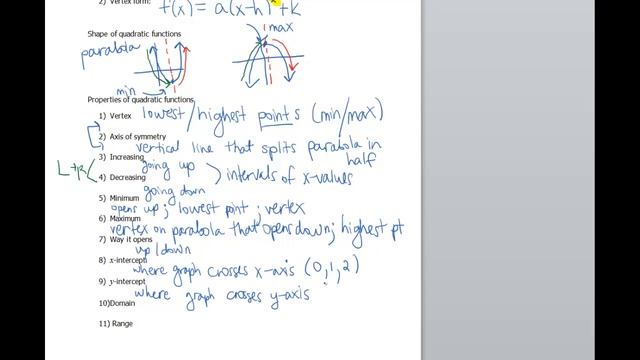 2) Vertex form: f(x) = a(x-h)² + k
Shape of quadratic functions
max
parabola
min
Properties of quadratic functions
1) Vertex lowest/highest points (min/max)
2) Axis of symmetry
vertical line that splits parabola in half
3) Increasing
going up
L→R
intervals of x-values
4) Decreasing
going down
5) Minimum
opens up; lowest point; vertex
6) Maximum
vertex on parabola that opens down; highest pt
7) Way it opens
up/down
8) x-intercept
where graph crosses x-axis (0,1,2)
9) y-intercept
where graph crosses y-axis
10)Domain
11) Range